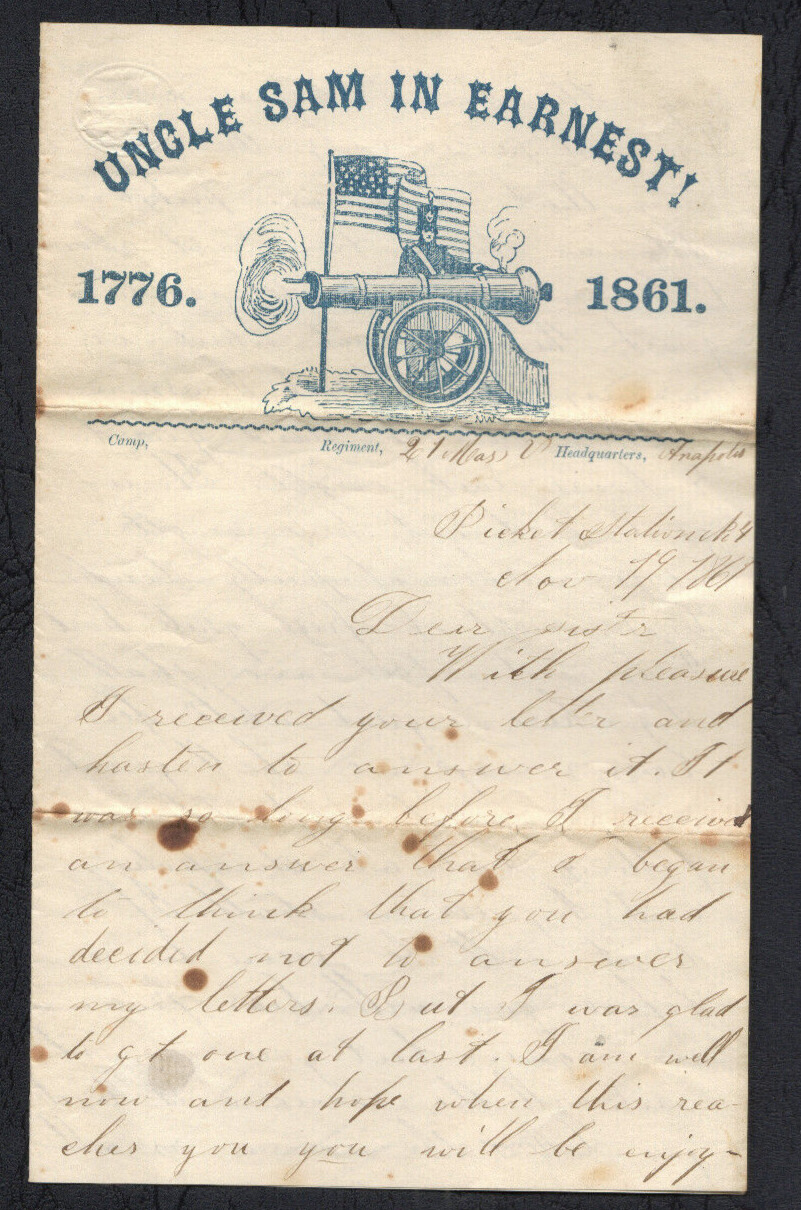 UNCLE SAM IN EARNEST!
1776. 1861.
Camp, Regiment, 21 Mass V Headquarters, Anapolis
Picket Station No 4
Nov 19 1861
Dear sister
With pleasure
I received your letter and
hasten to answer it. It
was so long before I received
an answer that I began
to think that you had
decided not to answer
my letters. But I was glad
to get one at last. I am well
now and hope when this rea-
ches you you will be enjoy-